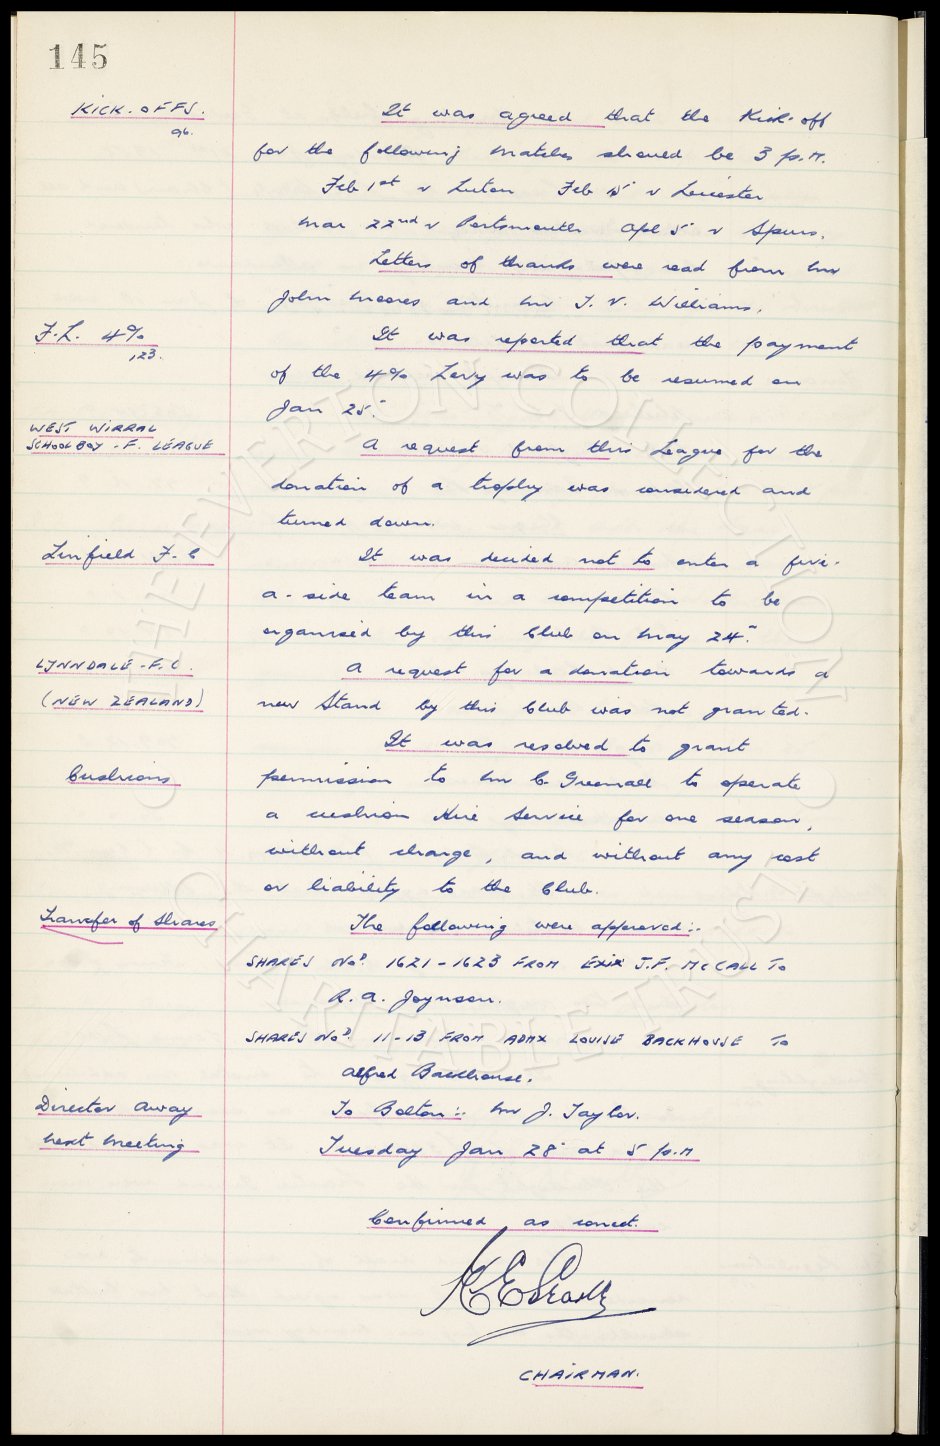 145
KICK-OFFS.
96.
It was agreed that the Kick-off
for the following matches should be 3 p.m.
Feb 1st v Luton Feb 15 v Leicester
Mar 22nd v Portsmouth Apl 5 v Spurs.
Letters of thanks were read from Mr
John Moores and Mr T. V. Williams.
F.L. 4%
123.
It was reported that the payment
of the 4% Levy was to be resumed on
Jan 25.
WEST WIRRAL
SCHOOLBOY-F. LEAGUE
A request from this League for the
donation of a trophy was considered and
turned down.
Linfield F.C
It was decided not to enter a five-
a-side team in a competition to be
organised by this Club on May 24th.
LYNNDALE-F.C.
(NEW ZEALAND)
A request for a donation towards a
new Stand by this Club was not granted.
It was resolved to grant
Cushions
permission to Mr C. Greenall to operate
a cushion Hire Service for one season,
without charge, and without any cost
or liability to the Club.
Transfer of Shares
The following were approved:-
SHARES Nos. 1621-1623 FROM EXIX J.F. McCALL TO
R. A. Joynson.
SHARES Nos. 11-13 FROM ADMX LOUISE BACKHOUSE TO
Alfred Backhouse.
Director Away
To Bolton:- Mr J. Taylor.
Next Meeting
Tuesday Jan 28 at 5 p.m
Confirmed as correct.
CHAIRMAN.
THE EVERTON COLLECTION
CHARITABLE TRUST